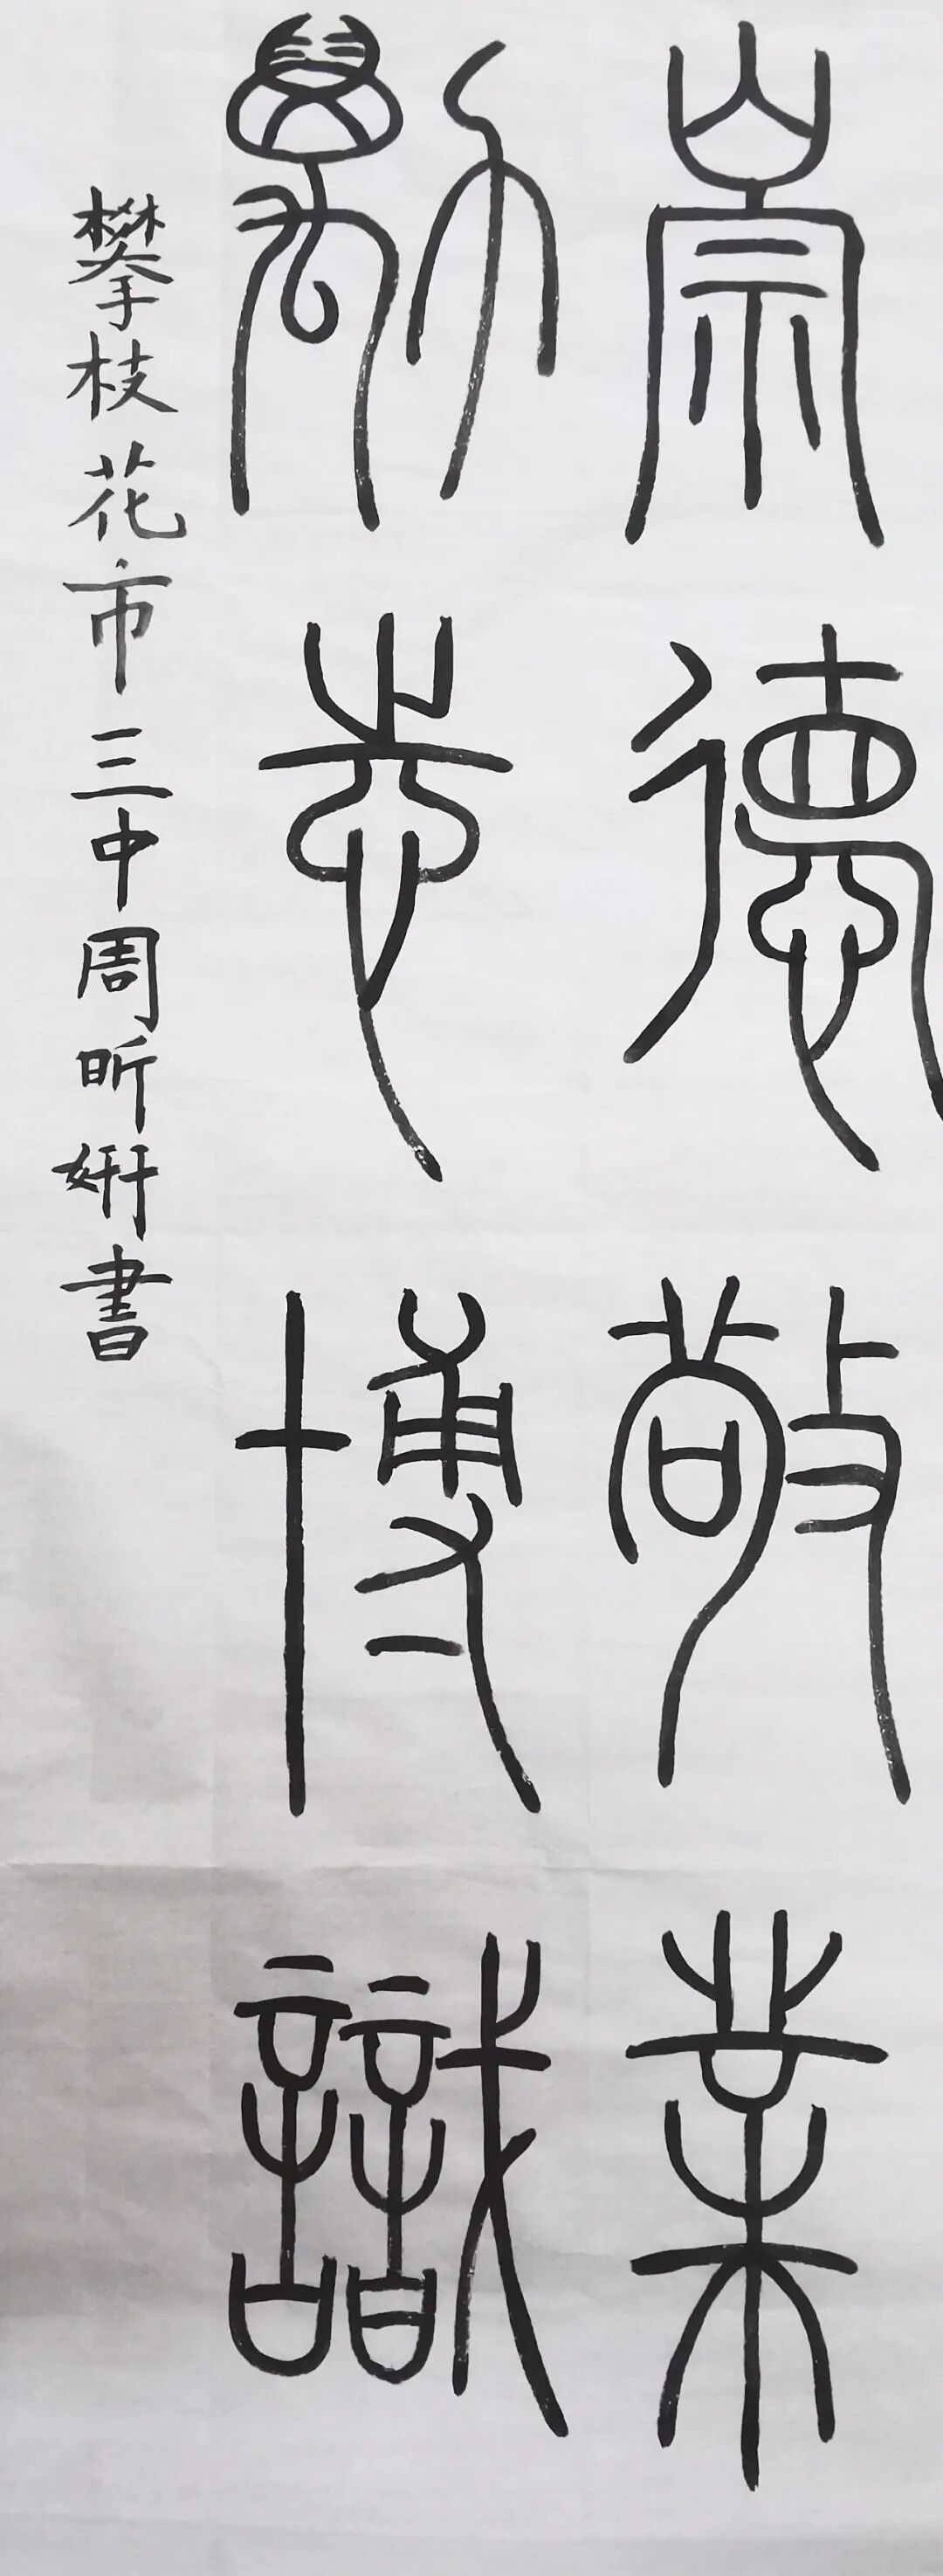 崇德敬業
勱志博識
攀枝花市三中周昕妍書